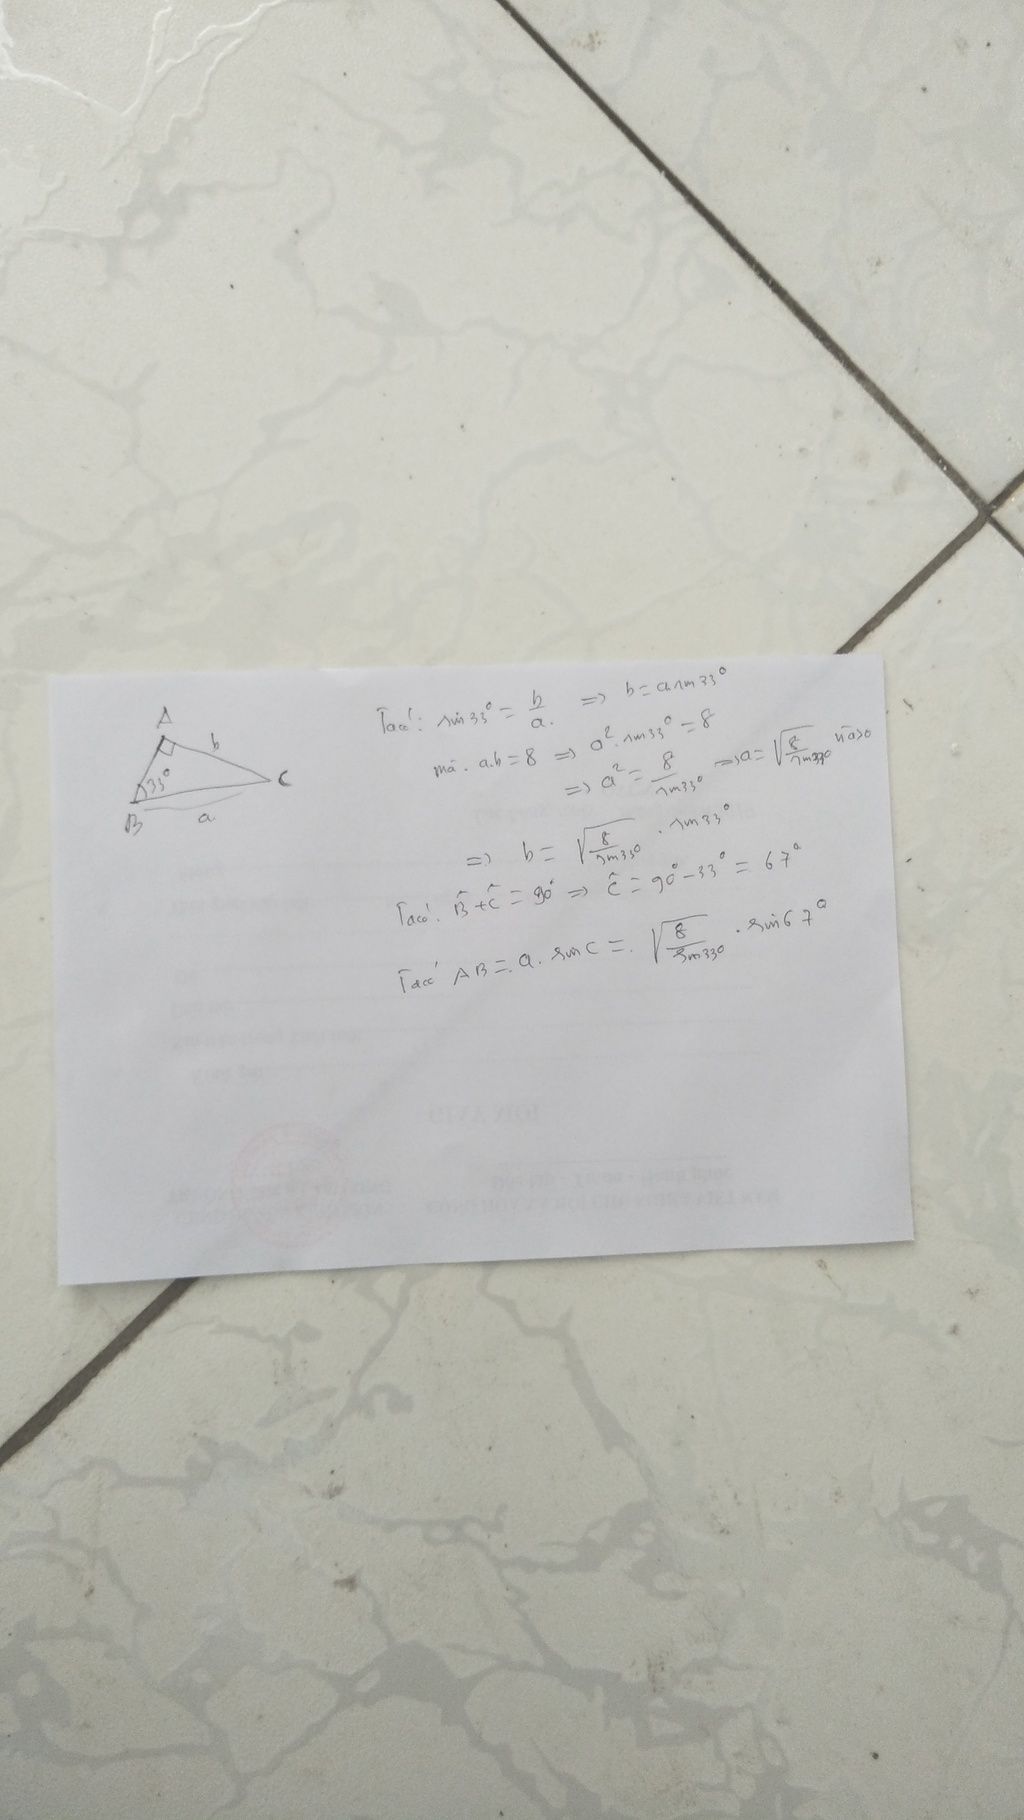 A
b
33°
C
B
a
Ta có: sin33° = b/a. => b = a.sin33°
mà. a.b = 8 => a². sin33° = 8
=> a² = 8/sin33° => a = √(8/sin33°) vì a>0
=> b = √(8/sin33°) . sin33°
Ta có: B̂ + Ĉ = 90° => Ĉ = 90° - 33° = 67°
Ta có AB = a. sinC = √(8/sin33°) . sin67°